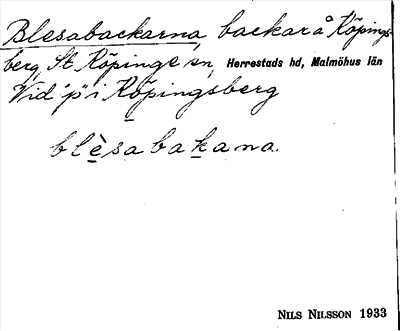 Blesabackarna, backar å Köpings-
berg, St. Köpinge sn, Herrestads hd, Malmöhus län
Vid "p" i Köpingsberg
blèsabakana.
NILS NILSSON 1933